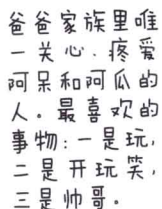 爸爸家族里唯
一关心、疼爱
阿呆和阿瓜的
人。最喜欢的
事物：一是玩，
二是开玩笑，
三是帅哥。